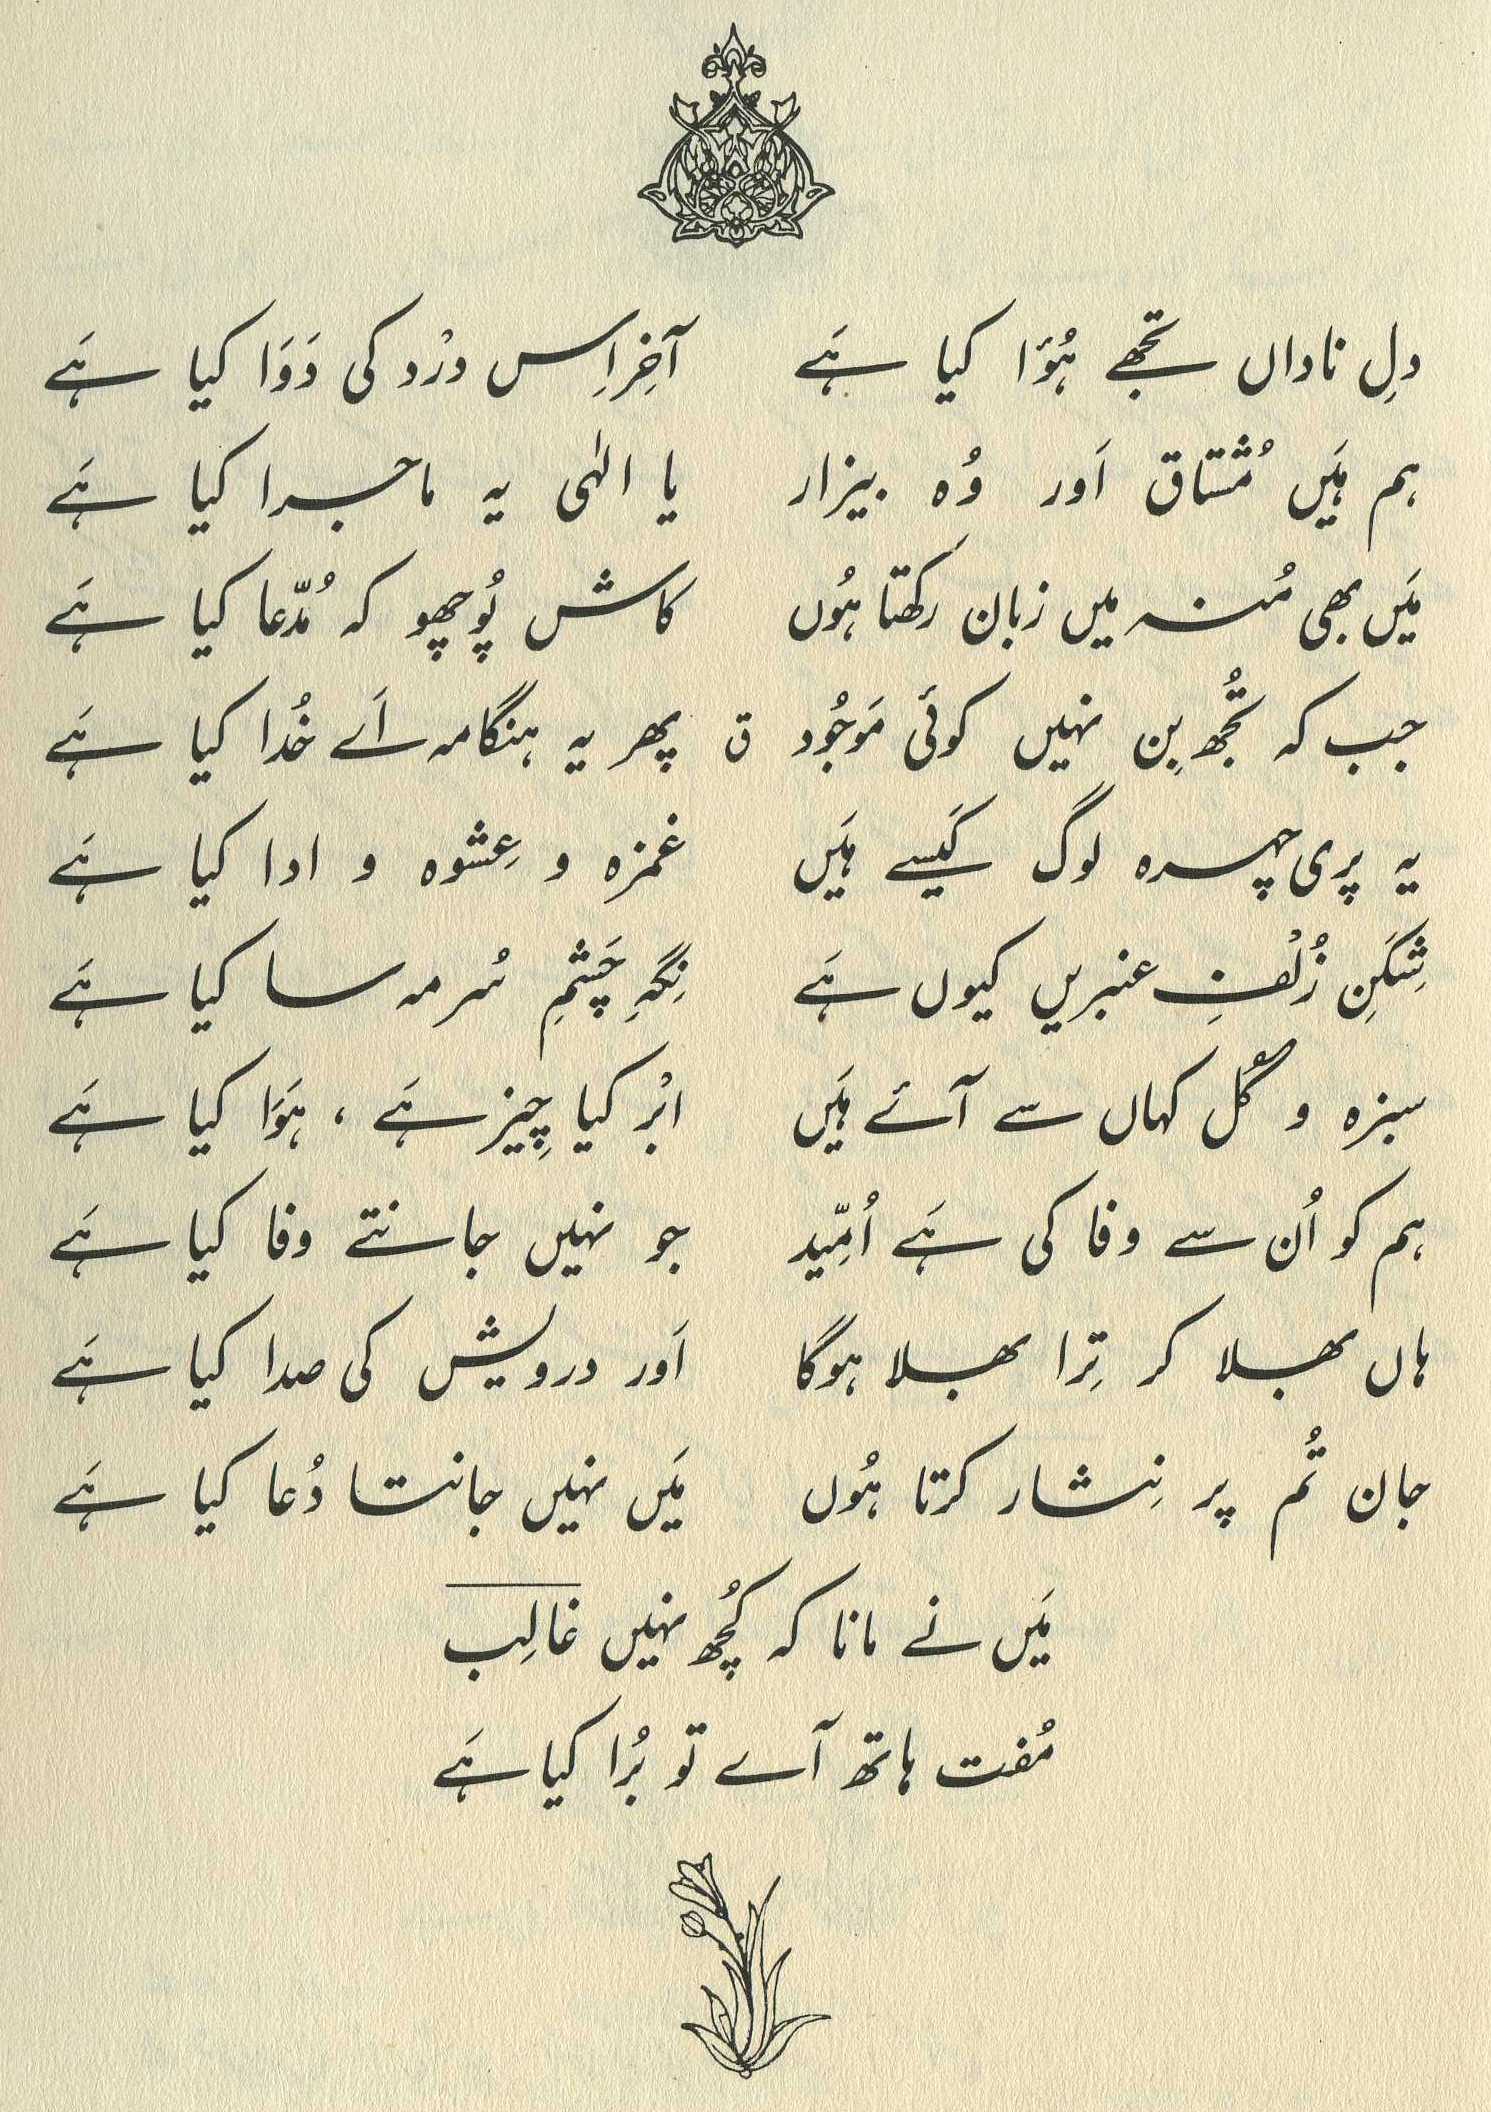 دلِ ناداں تجھے ہُؤا کیا ہَے آخِر اِس درْد کی دَوَا کیا ہَے
ہم ہَیں مُشتاق اَور وُہ بیزار یا الٰہی یہ ماجرا کیا ہَے
مَیں بھی مُنہ میں زبان رکھتا ہُوں کاش پُوچھو کہ مُدّعا کیا ہَے
جب کہ تُجھ بِن نہیں کوئی مَوجُود ق پھر یہ ہنگامہ اَے خُدا کیا ہَے
یہ پری چہرہ لوگ کَیسے ہَیں غمزہ و عِشوہ و ادا کیا ہَے
شِکَنِ زُلْفِ عنبریں کیوں ہَے نِگَہِ چَشْمِ سُرمہ سا کیا ہَے
سبزہ و گُل کہاں سے آئے ہَیں ابْر کیا چِیز ہَے ، ہَوَا کیا ہَے
ہم کو اُن سے وفا کی ہَے اُمِّید جو نہیں جانتے وفا کیا ہَے
ہاں بھلا کر تِرا بھلا ہوگا اَور درویش کی صدا کیا ہَے
جان تُم پر نِثار کرتا ہُوں مَیں نہیں جانتا دُعا کیا ہَے
مَیں نے مانا کہ کُچھ نہیں غالِب
مُفت ہاتھ آے تو بُرا کیا ہَے